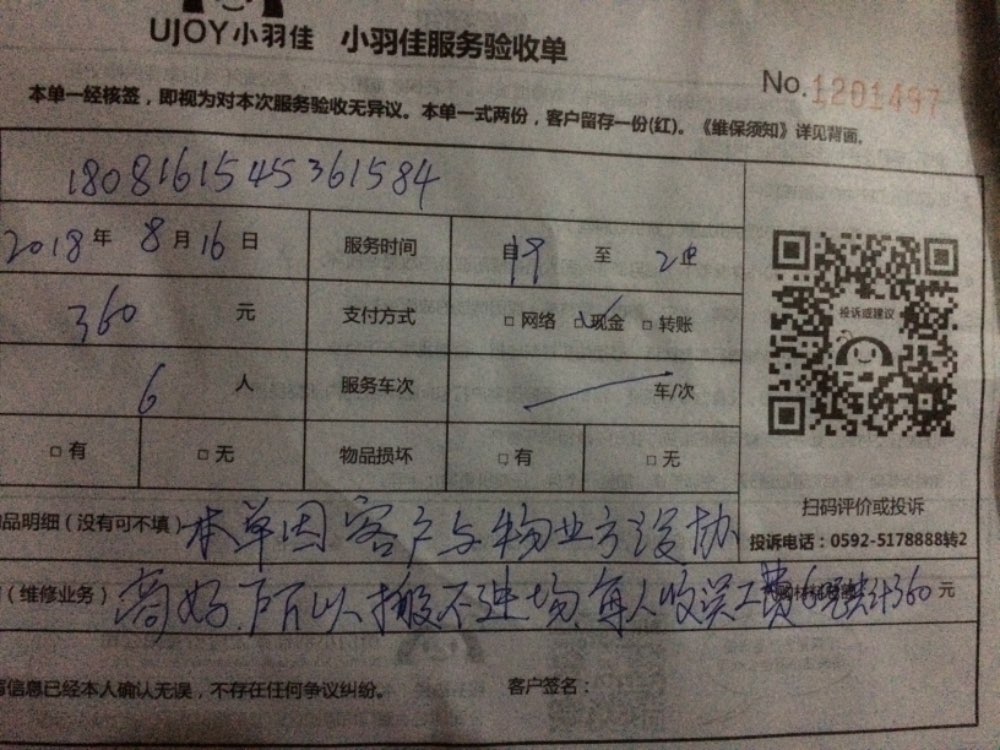 UJOY小羽佳 小羽佳服务验收单
No.1201497
本单一经核签，即视为对本次服务验收无异议。本单一式两份，客户留存一份(红)。《维保须知》详见背面。
1808161545361584
2018年 8月16日 服务时间 自19 至 21止
360 元 支付方式 □网络 □现金 □转账
投诉或建议
6 人 服务车次 车/次
□有 □无 物品损坏 □有 □无
扫码评价或投诉
投诉电话：0592-5178888转2
品明细（没有可不填）本单因客户与物业方没协
（维修业务）商好.所以搬不进场.每人收误工费6 共计360元
信息已经本人确认无误，不存在任何争议纠纷。 客户签名：